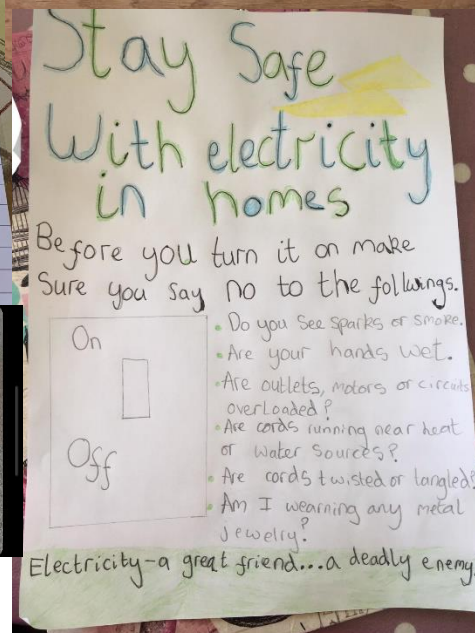 Stay Safe
With electricity
in homes
Before you turn it on make
Sure you say no to the follwings.
On
Off
Do you see sparks or smoke.
Are your hands wet.
Are outlets, motors or circuits
overloaded?
Are cords running near heat
or water sources?
Are cords twisted or langled?
Am I wearning any metal
jewelry?
Electricity-a great friend...a deadly enemy